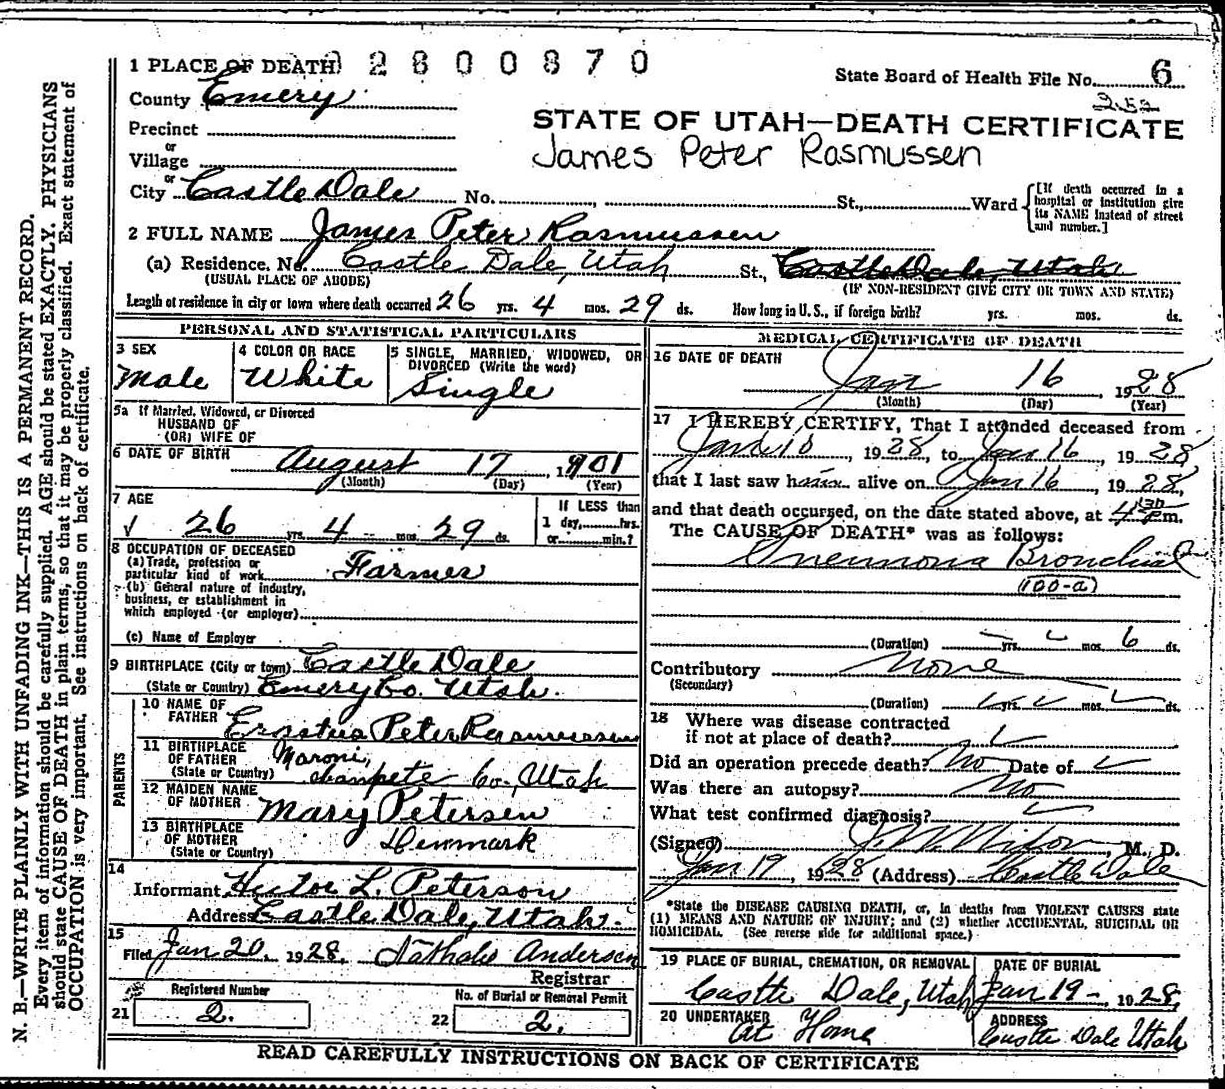 1 PLACE OF DEATH 0 2 8 0 0 8 7 0
State Board of Health File No. 6
252
County Emery
Precinct
STATE OF UTAH—DEATH CERTIFICATE
or
Village
James Peter Rasmussen
or
City Castle Dale No. , St., Ward
[If death occurred in a
hospital or institution give
its NAME instead of street
and number.]
2 FULL NAME James Peter Rasmussen
(a) Residence. No. Castle Dale, Utah St., Castle Dale Utah
(USUAL PLACE OF ABODE) (IF NON-RESIDENT GIVE CITY OR TOWN AND STATE)
Length of residence in city or town where death occurred 26 yrs. 4 mos. 29 ds. How long in U. S., if foreign birth? yrs. mos. ds.
PERSONAL AND STATISTICAL PARTICULARS
3 SEX
Male
4 COLOR OR RACE
White
5 SINGLE, MARRIED, WIDOWED, OR
DIVORCED (Write the word)
Single
5a If Married, Widowed, or Divorced
HUSBAND OF
(OR) WIFE OF
6 DATE OF BIRTH August 17 , 1901
(Month) (Day) (Year)
7 AGE
26 yrs. 4 mos. 29 ds.
If LESS than
1 day,......hrs.
or......min.?
8 OCCUPATION OF DECEASED
(a) Trade, profession or
particular kind of work Farmer
(b) General nature of industry,
business, or establishment in
which employed (or employer)
(c) Name of Employer
9 BIRTHPLACE (City or town) Castle Dale
(State or Country) Emery Co. Utah.
PARENTS
10 NAME OF
FATHER Erastus Peter Rasmussen
11 BIRTHPLACE
OF FATHER
(State or Country) Moroni,
Sanpete Co., Utah
12 MAIDEN NAME
OF MOTHER Mary Petersen
13 BIRTHPLACE
OF MOTHER
(State or Country) Denmark
14
Informant Hector L. Peterson
Address Castle Dale, Utah.
15
Filed Jan 20, 1928, Nathalo Andersen
Registrar
Registered Number
21 2.
No. of Burial or Removal Permit
22 2.
MEDICAL CERTIFICATE OF DEATH
16 DATE OF DEATH
Jan 16 , 1928
(Month) (Day) (Year)
17 I HEREBY CERTIFY, That I attended deceased from
Jan 10 , 1928, to Jan 16 , 1928,
that I last saw him alive on Jan 16 , 1928,
and that death occurred, on the date stated above, at 4 30 P m.
The CAUSE OF DEATH* was as follows:
Pneumonia Bronchial
(100-a)
(Duration) yrs. mos. 6 ds.
Contributory None
(Secondary)
(Duration) yrs. mos. ds.
18 Where was disease contracted
if not at place of death?
Did an operation precede death? No Date of
Was there an autopsy? No
What test confirmed diagnosis?
(Signed) J. W. Nixon, M. D.
Jan 19 , 1928 (Address) Castle Dale
*State the DISEASE CAUSING DEATH, or, in deaths from VIOLENT CAUSES state
(1) MEANS AND NATURE OF INJURY; and (2) whether ACCIDENTAL, SUICIDAL OR
HOMICIDAL. (See reverse side for additional space.)
19 PLACE OF BURIAL, CREMATION, OR REMOVAL
Castle Dale, Utah
DATE OF BURIAL
Jan 19 - , 1928,
20 UNDERTAKER
At Home
ADDRESS
Castle Dale Utah
READ CAREFULLY INSTRUCTIONS ON BACK OF CERTIFICATE
N. B.—WRITE PLAINLY WITH UNFADING INK—THIS IS A PERMANENT RECORD.
Every item of information should be carefully supplied. AGE should be stated EXACTLY. PHYSICIANS
should state CAUSE OF DEATH in plain terms, so that it may be properly classified. Exact statement of
OCCUPATION is very important. See instructions on back of certificate.